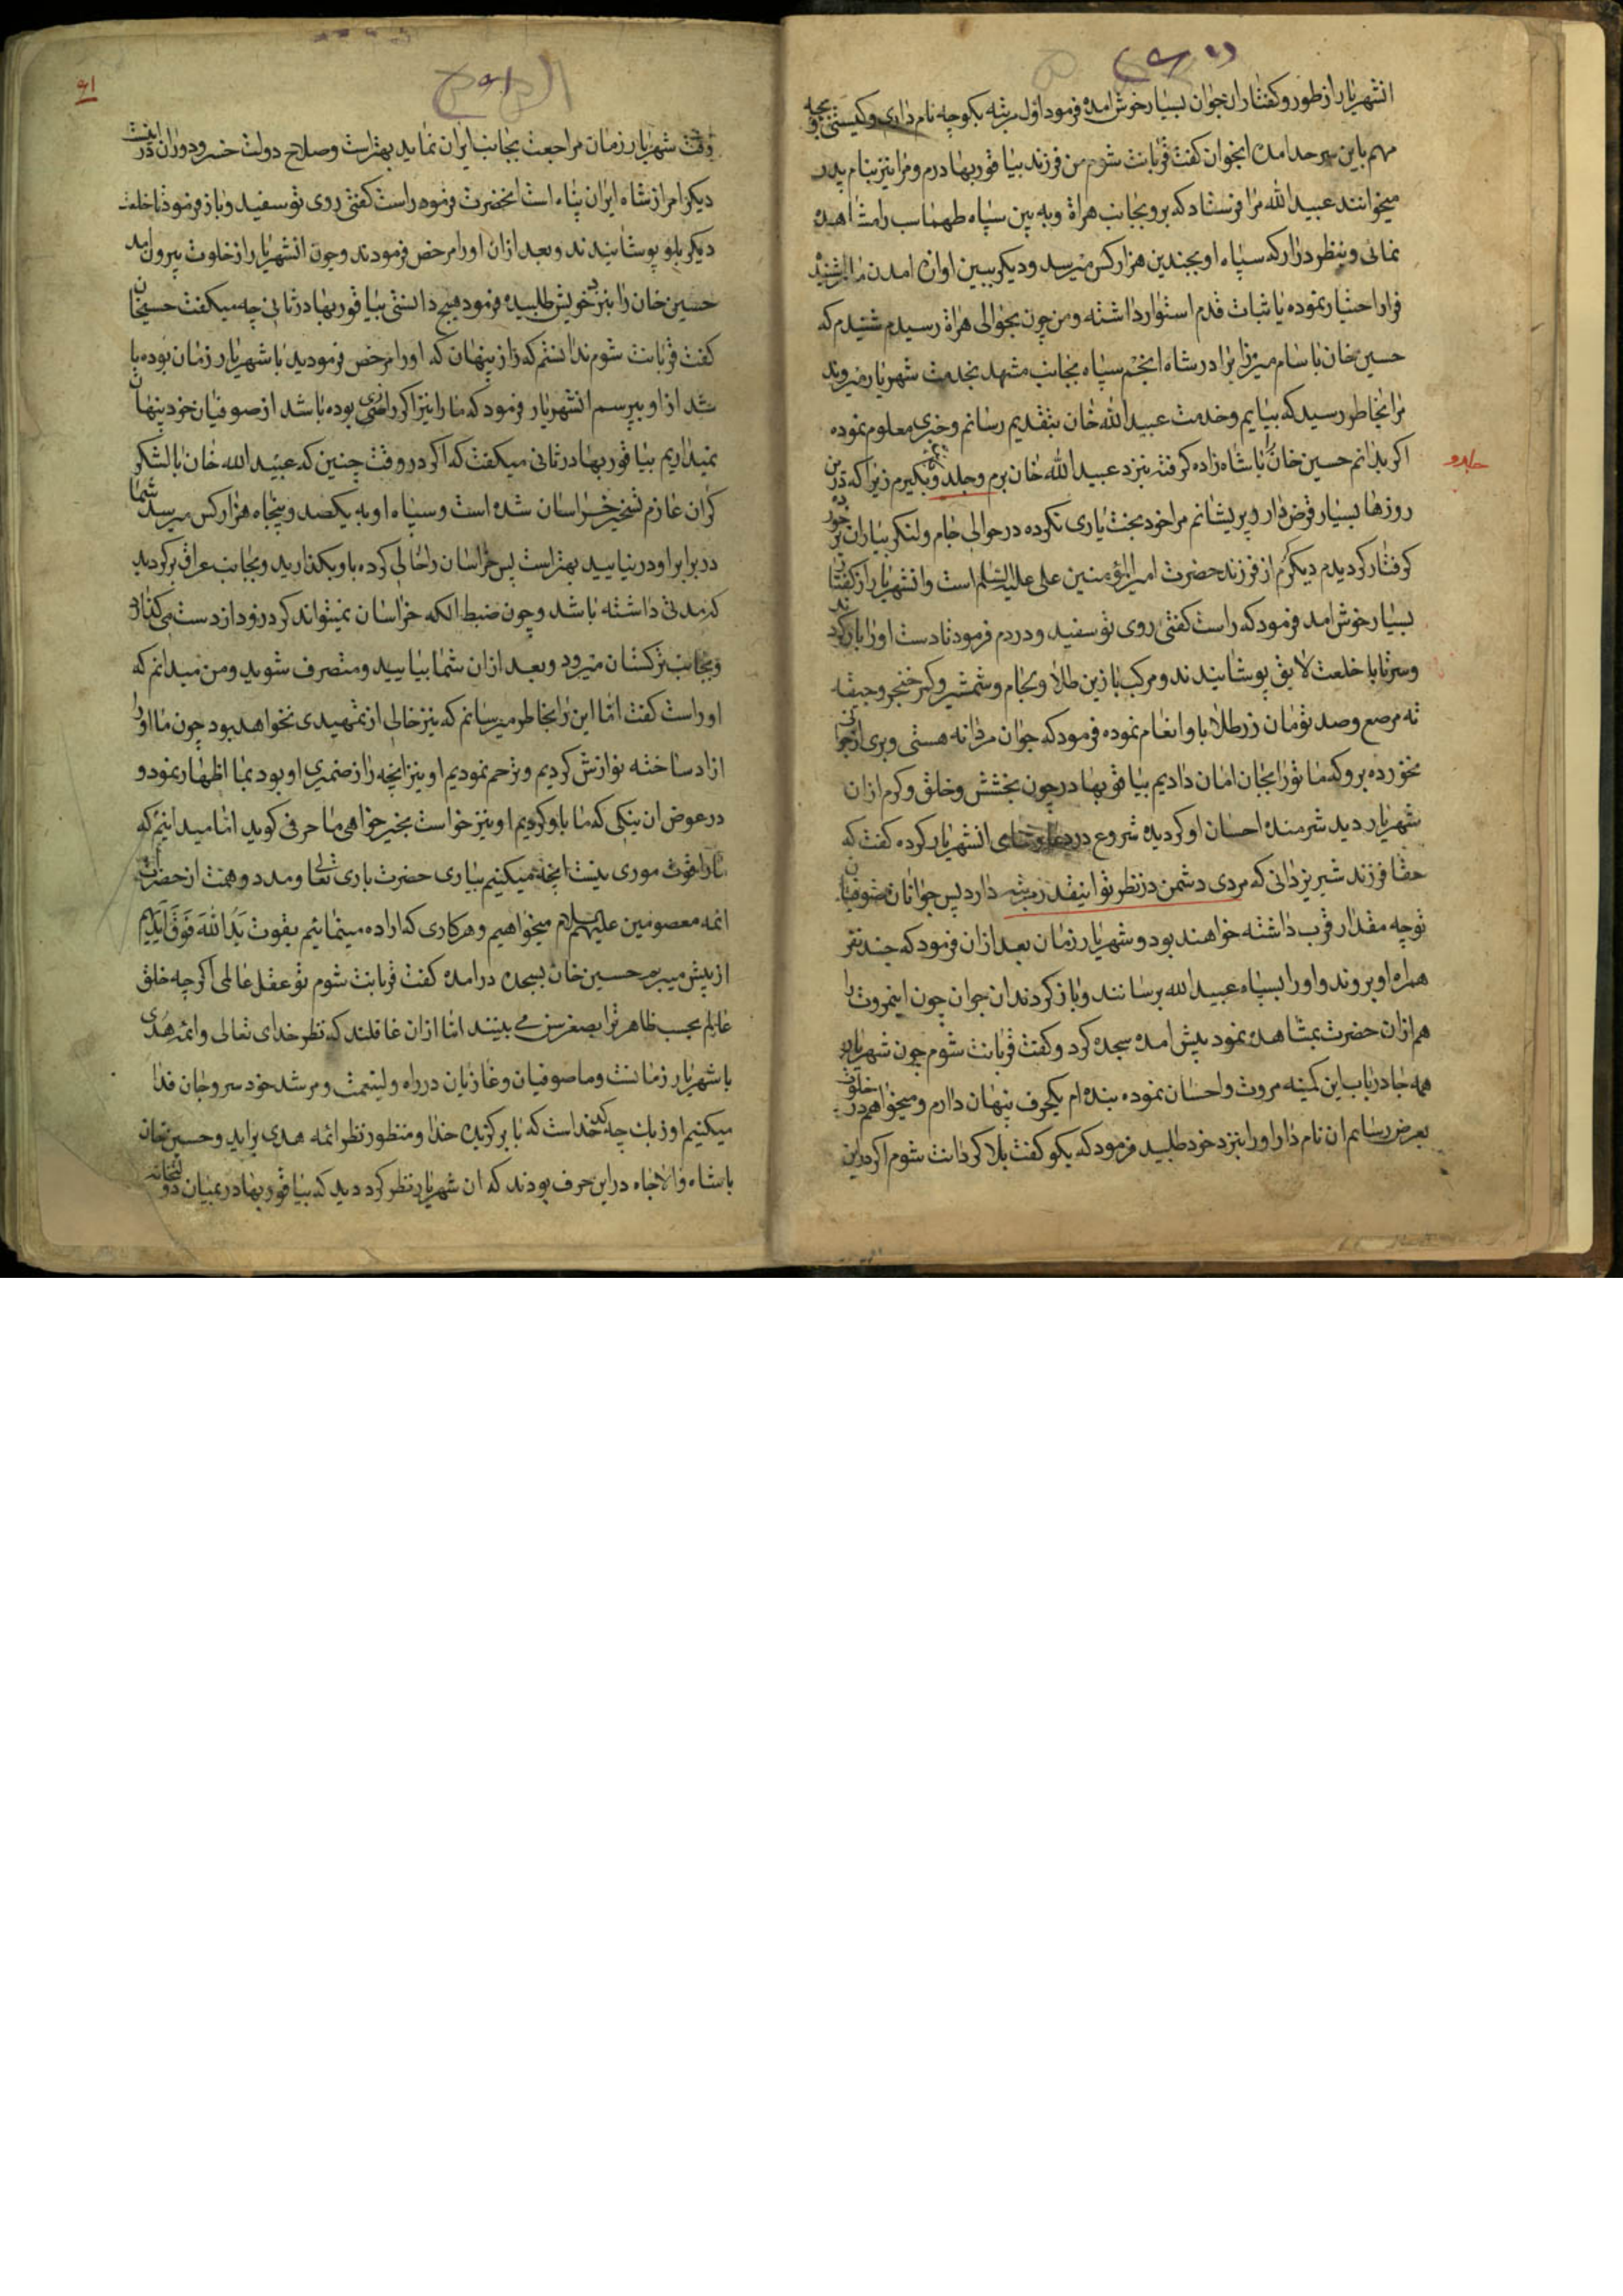 انشهریار از طور و کفتار ان جوان بسیار خوش امده فرمود اول مرتبه بکو چه نام داری و کیستی و بچه
مهم باین سرحد امده انجوان کفت قربانت شوم من فرزند بیاقو بهادرم و مرا نیز بنام پدر
میخوانند عبیدالله مرا فرستاد که برو بجانب هراة و به بین سپاه طهماسب را مشاهده
نمائی و بنظر درار که سپاه او بچندین هزار کس میرسد و دیکر ببین اوازه امدن ما را شنیده
فرار اختیار نموده یا ثبات قدم استوار داشته و من چون بحوالی هراة رسیدم شنیدم که
حسین خان با سام میرزا برادر شاه انجم سپاه بجانب مشهد بخدمت شهریار میروند
مرا بخاطر رسید که بیایم و خدمت عبیدالله خان بتقدیم رسانم و خبری معلوم نموده
اکر بدانم حسین خان را با شاه زاده کرفته بنزد عبیدالله خان برم و جلدو بکیرم زیرا که درین
جلدو
روزها بسیار قرض دار و پریشانم مرا خود بخت یاری نکرده در حوالی جام ولنکر بیاران تو برخورده
کرفتار کردیدم دیکر کرم از فرزند حضرت امیرالمؤمنین علی علیه السلم است و انشهریار را از کفتار
بسیار خوش امد فرمود که راست کفتی روی تو سفید و در دم فرمود تا دست او را باز کردند
و سر تا پا خلعت لایق پوشانیدند و مرکب با زین طلا و لجام و شمشیر و کمر خنجر و جیقه
ته مرصع و صد تومان زر طلا باو انعام نموده فرمود که جوان مردانه هستی و بری از جوانی
نخورده برو که ما تو را بجان امان دادیم بیاقو بهادر چون بخشش و خلق و کرم ازان
شهریار دید شرمنده احسان او کردیده شروع در دعا و ثنای انشهریار کرده کفت که
حقا فرزند شیر یزدانی که مردی دشمن در نظر تو اینقدر مرتبه دارد پس جوانان صوفیان
تو چه مقدار قرب داشته خواهند بود و شهریار زمان بعد ازان فرمود که چند نفر
همراه او بروند و او را بسپاه عبیدالله برسانند و باز کردند ان جوان چون اینمروت را
هم ازان حضرت بمشاهده نمود پیش امده سجده کرد و کفت قربانت شوم چون شهریار
همه جا در باب این کمینه مروت و احسان نموده بنده ام یکحرف پنهان دارم و میخواهم در خلوت
بعرض رسانم ان نام دار او را بنزد خود طلبید فرمود که بکو کفت بلا کردانت شوم اکر درین
۶۱
وقت شهریار زمان مراجعت بجانب ایران نماید بهتر است و صلاح دولت خسرو دوران در اینست
دیکر امر از شاه ایران پناه است انحضرت فرمود راست کفتی روی تو سفید و باز فرمود تا خلعت
دیکر باو پوشانیدند و بعد ازان او را مرخص فرمودند و چون انشهریار از خلوت بیرون امد
حسین خان را بنزد خویش طلبیده فرمود هیچ دانستی بیاقو بهادر ثانی چه میکفت حسین خان
کفت قربانت شوم ندانستم که راز پنهان که او را مرخص فرمودید با شهریار زمان بوده باشد
شد از او بپرسم انشهریار فرمود که ما را نیز اکر رازی بوده باشد از صوفیان خود پنهان
نمیداریم بیاقو بهادر ثانی میکفت که اکر در وقت چنین که عبیدالله خان با لشکر
کران عازم تسخیر خراسان شده است و سپاه او به یکصد و پنجاه هزار کس میرسد شما
در برابر او در نیایید بهتر است پس خراسان را خالی کرده باو بکذارید و بجانب عراق برکردید
که مدتی داشته باشد و چون ضبط الکه خراسان نمیتواند کرد زود از دست می کذارد
و بجانب ترکستان میرود و بعد ازان شما بیایید و متصرف شوید و من میدانم که
او راست کفت اما این را بخاطر میرسانم که نیز خالی از تمهیدی نخواهد بود چون ما او را
ازاد ساخته نوازش کردیم و ترحم نمودیم او نیز انچه راز ضمیری او بود بما اظهار نمود و
در عوض ان نیکی که ما باو کردیم او نیز خواست بخیر خواهی ما حرفی کوید اما میدانیم که
ما را قوت موری نیست انچه میکنیم بیاری حضرت باری تعالی و مدد و همت از حضرات
ائمه معصومین علیهم السلام میخواهیم و هر کاری که اراده مینمائیم بقوت یدالله فوق ایدیهم
از پیش میبریم حسین خان بسجده درامده کفت قربانت شوم تو عقل عالمی اکرچه خلق
عالم بحسب ظاهر ترا بصغر سن می بینند اما ازان غافلند که نظر خدای تعالی و ائمه هدی
با شهریار زمانست و ما صوفیان و غازیان در راه ولینعمت و مرشد خود سر و جان فدا
میکنیم اوزبک چه کند خداست که با برکزیده خدا و منظور نظر ائمه هدی براید و حسین خان
با شاه والاجاه در این حرف بودند که ان شهریار نظر کرد دید که بیاقو بهادر بمیان دولتخانه